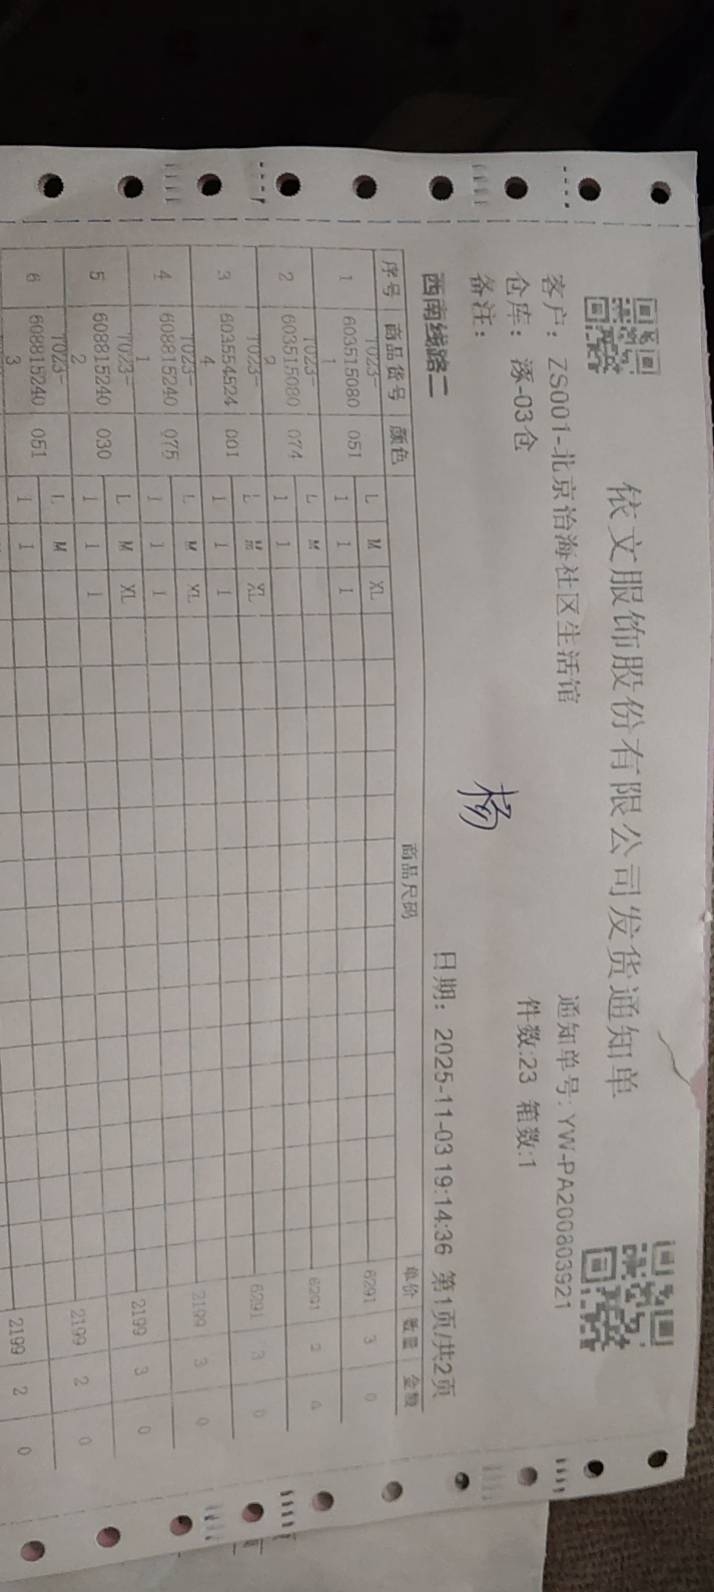 依文服饰股份有限公司发货通知单
客户：ZS001-北京怡海社区生活馆 通知单号: YW-PA200803921
仓库：涿-03仓 件数:23 箱数:1
备注：
杨
西南线路二 日期：2025-11-03 19:14:36 第1页/共2页
序号 商品货号 颜色 商品尺码 单价 数量 金额
L M XL
1 T023-6035150801 051 1 1 1 6291 3 0
L M
2 T023-6035150802 074 1 1 6291 2
L M XL
3 T023-6035545244 001 1 1 1 6291 3 0
L M XL
4 T023-6088152401 075 1 1 1 2199 3 0
L M XL
5 T023-6088152402 030 1 1 1 2199 3 0
L M
6 T023-6088152403 051 1 1 2199 2 0
2199 2 0